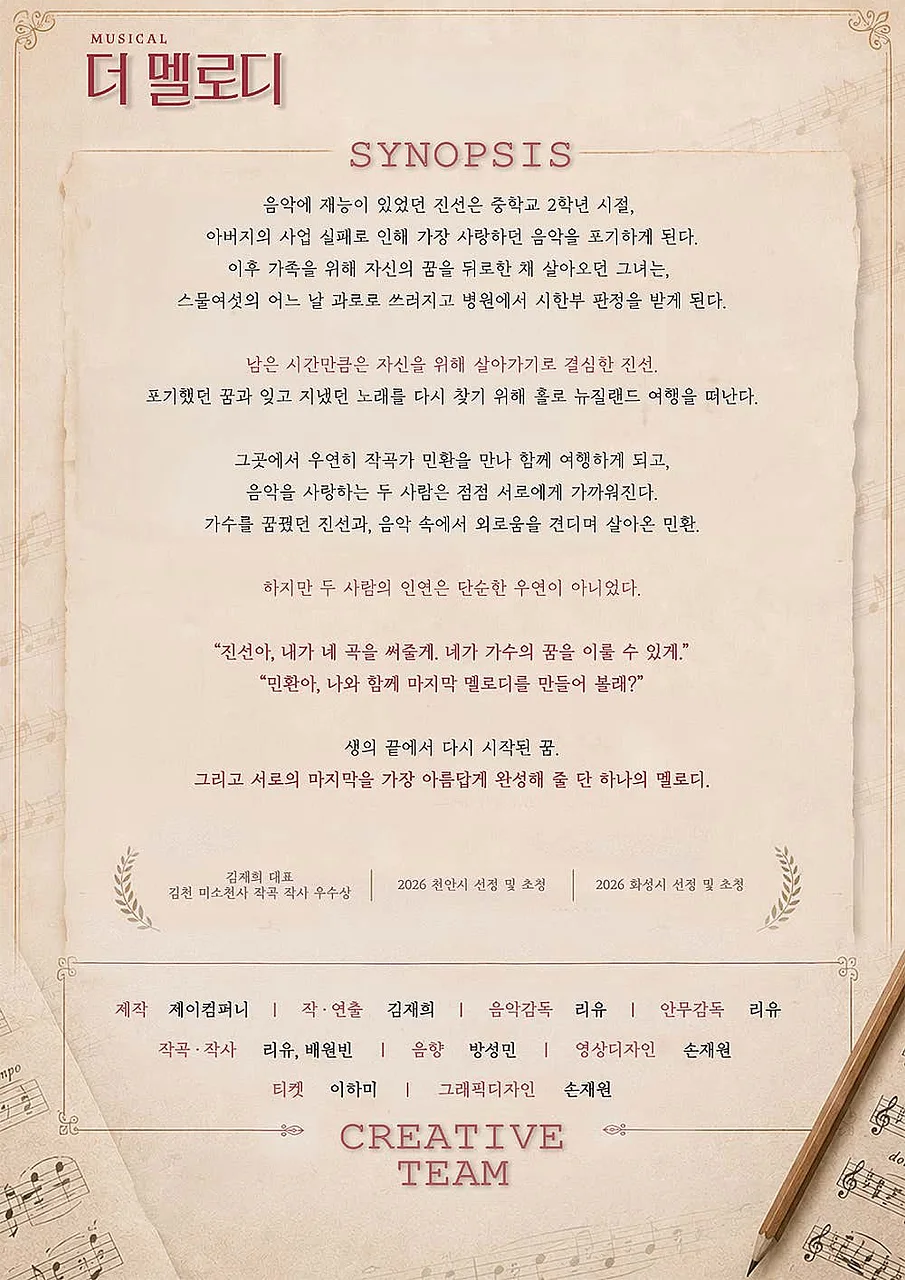 MUSICAL
더 멜로디
SYNOPSIS
음악에 재능이 있었던 진선은 중학교 2학년 시절,
아버지의 사업 실패로 인해 가장 사랑하던 음악을 포기하게 된다.
이후 가족을 위해 자신의 꿈을 뒤로한 채 살아오던 그녀는,
스물여섯의 어느 날 과로로 쓰러지고 병원에서 시한부 판정을 받게 된다.
남은 시간만큼은 자신을 위해 살아가기로 결심한 진선.
포기했던 꿈과 잊고 지냈던 노래를 다시 찾기 위해 홀로 뉴질랜드 여행을 떠난다.
그곳에서 우연히 작곡가 민환을 만나 함께 여행하게 되고,
음악을 사랑하는 두 사람은 점점 서로에게 가까워진다.
가수를 꿈꿨던 진선과, 음악 속에서 외로움을 견디며 살아온 민환.
하지만 두 사람의 인연은 단순한 우연이 아니었다.
“진선아, 내가 네 곡을 써줄게. 네가 가수의 꿈을 이룰 수 있게.”
“민환아, 나와 함께 마지막 멜로디를 만들어 볼래?”
생의 끝에서 다시 시작된 꿈.
그리고 서로의 마지막을 가장 아름답게 완성해 줄 단 하나의 멜로디.
김재희 대표
김천 미소천사 작곡 작사 우수상
2026 천안시 선정 및 초청
2026 화성시 선정 및 초청
제작 제이컴퍼니 | 작·연출 김재희 | 음악감독 리유 | 안무감독 리유
작곡·작사 리유, 배원빈 | 음향 방성민 | 영상디자인 손재원
티켓 이하미 | 그래픽디자인 손재원
CREATIVE
TEAM
mpo
dol